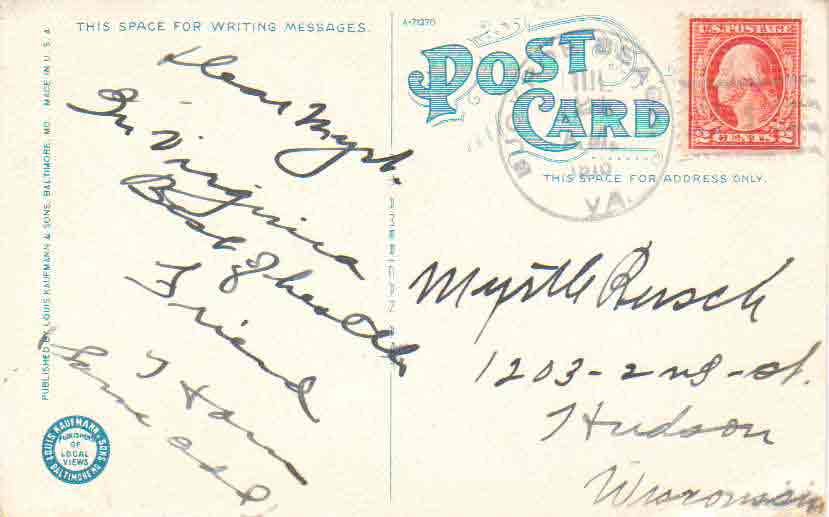 THIS SPACE FOR WRITING MESSAGES.
A-71270
POST CARD
THIS SPACE FOR ADDRESS ONLY.
U.S. POSTAGE
2 CENTS 2
VA.
PUBLISHED BY LOUIS KAUFMANN & SONS, BALTIMORE, MD. MADE IN U.S.A.
AMERICAN ART
Dear Myrt.
In Virginia
Best of health
Friend
Same add
Myrtle Busch
1203-2nd-st.
Hudson
Wisconsin
LOUIS KAUFMANN & SONS
PUBLISHERS
OF
LOCAL
VIEWS
BALTIMORE MD